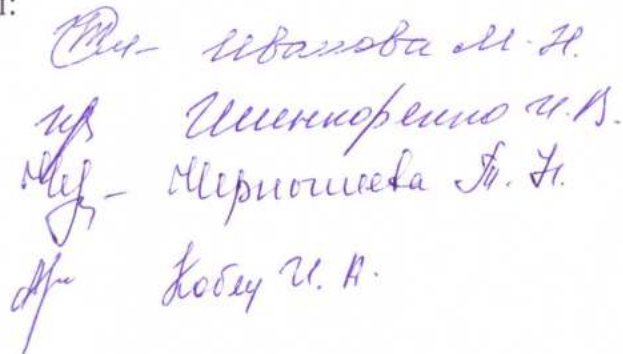 Иванова М. Н.
Шинкоренко И. В.
Чернышева Т. Н.
Кобец И. А.